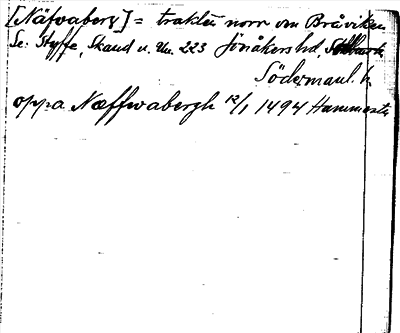 [Näfvaberg] = trakten norr om Bråviken
Se: Styffe, Skand u. Un. 223 Jönåkers hd,
Södermanl. l.
oppa Næffwabergh 12/1 1494 Hammersta